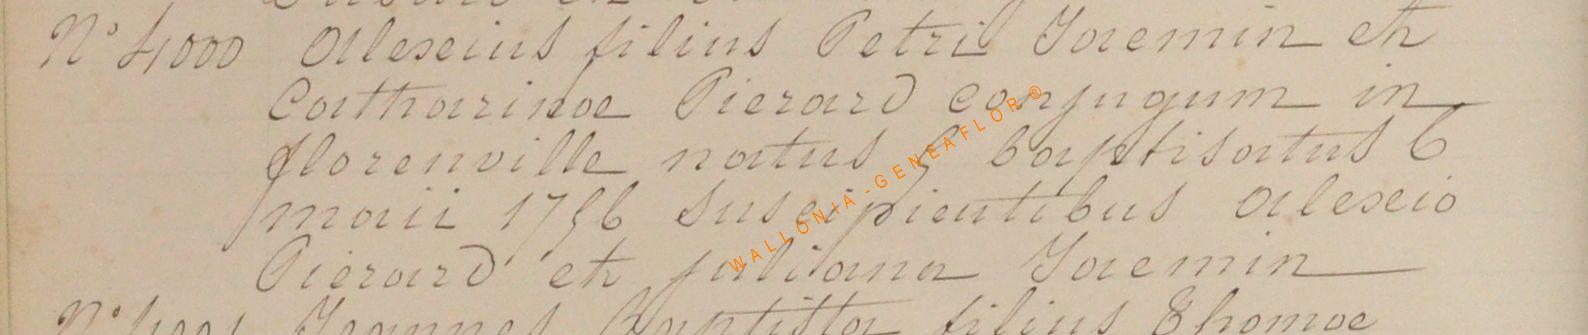 N° 4000 Alexius filius Petri Jaemin et
Catharinae Pierard conjugum in
florenville natus 5 baptisatus 6
maii 1756 Suscipientibus Alexio
Pierard et juliana Jaemin
Joannes Baptista filius Thomae
WALLONIA-GENEAFLOR®